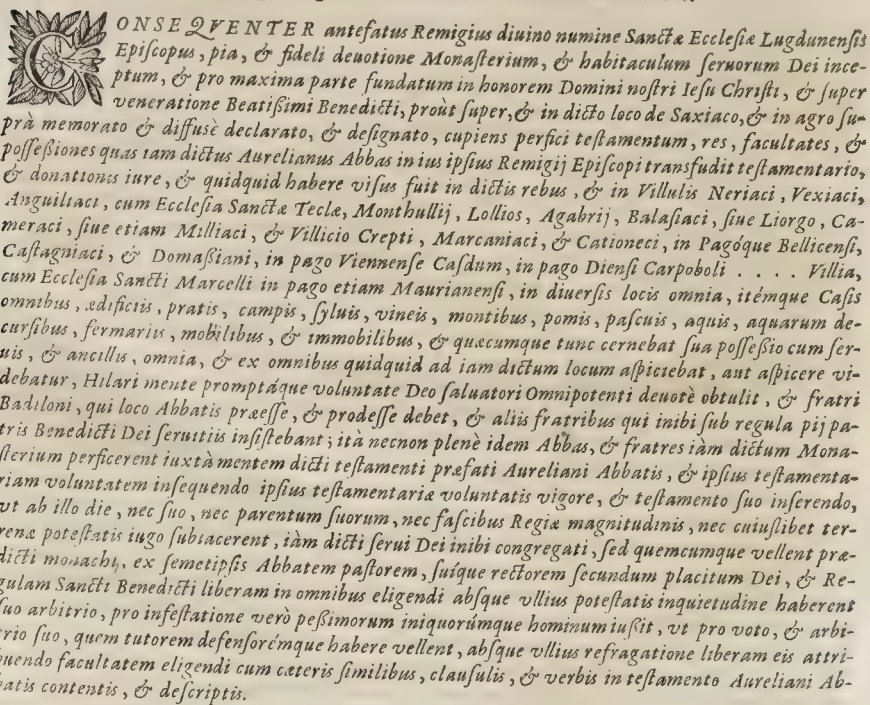 CONSEQVENTER antefatus Remigius diuino numine Sanctæ Ecclesiæ Lugdunensis
Episcopus, pia, & fideli deuotione Monasterium, & habitaculum seruorum Dei ince-
ptum, & pro maxima parte fundatum in honorem Domini nostri Iesu Christi, & super
veneratione Beatissimi Benedicti, proùt super, & in dicto loco de Saxiaco, & in agro su-
prà memorato & diffusè declarato, & designato, cupiens perfici testamentum, res, facultates, &
possessiones quas iam dictus Aurelianus Abbas in ius ipsius Remigij Episcopi transfudit testamentario,
& donationis iure, & quidquid habere visus fuit in dictis rebus, & in Villulis Neriaci, Vexiaci,
Anguiliaci, cum Ecclesia Sanctæ Teclæ, Monthullij, Lollios, Agabrij, Balasiaci, siue Liorgo, Ca-
meraci, siue etiam Milliaci, & Villicio Crepti, Marcaniaci, & Cationeci, in Pagóque Bellicensi,
Castagniaci, & Domassiani, in pago Viennense Casdum, in pago Diensi Carpoboli . . . . Villia,
cum Ecclesia Sancti Marcelli in pago etiam Maurianensi, in diuersis locis omnia, itémque Casis
omnibus, ædificiis, pratis, campis, syluis, vineis, montibus, pomis, pascuis, aquis, aquarum de-
cursibus, fermariis, mobilibus, & immobilibus, & quæcumque tunc cernebat sua possessio cum ser-
uis, & ancillis, omnia, & ex omnibus quidquid ad iam dictum locum aspiciebat, aut aspicere vi-
debatur, Hilari mente promptáque voluntate Deo saluatori Omnipotenti deuotè obtulit, & fratri
Badiloni, qui loco Abbatis præesse, & prodesse debet, & aliis fratribus qui inibi sub regula pij pa-
tris Benedicti Dei seruitiis insistebant; ità necnon plenè idem Abbas, & fratres iàm dictum Mona-
sterium perficerent iuxtà mentem dicti testamenti præfati Aureliani Abbatis, & ipsius testamenta-
riam voluntatem insequendo ipsius testamentariæ voluntatis vigore, & testamento suo inserendo,
vt ab illo die, nec suo, nec parentum suorum, nec fascibus Regiæ magnitudinis, nec cuiuslibet ter-
renæ potestatis iugo subiacerent, iàm dicti serui Dei inibi congregati, sed quemcumque vellent præ-
dicti monachi, ex semetipsis Abbatem pastorem, suíque rectorem secundum placitum Dei, & Re-
gulam Sancti Benedicti liberam in omnibus eligendi absque vllius potestatis inquietudine haberent
suo arbitrio, pro infestatione verò pessimorum iniquorúmque hominum iussit, vt pro voto, & arbi-
trio suo, quem tutorem defensorémque habere vellent, absque vllius refragatione liberam eis attri-
buendo facultatem eligendi cum cæteris similibus, clausulis, & verbis in testamento Aureliani Ab-
batis contentis, & descriptis.